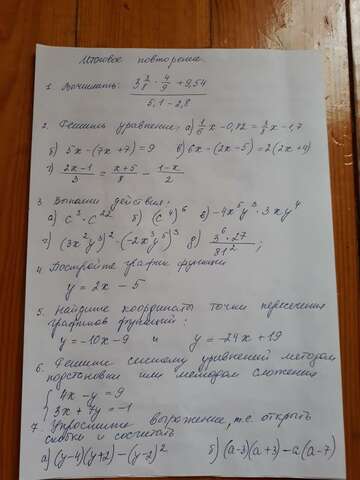 Итоговое повторение.
1. Вычислить: (3 3/8 · 4/9 + 9,54) / (5,1 - 2,8)
2. Решить уравнение: а) 1/6 x - 0,82 = 3/8 x - 1,7
б) 5x - (7x + 7) = 9 в) 6x - (2x - 5) = 2(2x + 4)
г) (2x - 1)/3 = (x + 5)/8 - (1 - x)/2
3. Выполни действия:
а) c³ · c²² б) (c⁴)⁶ в) -4x⁵y³ · 3xy⁴
г) (3x²y³)² · (-2x³y⁵)³ д) 3⁶ · 27 / 81²;
4. Постройте график функции
y = 2x - 5
5. Найдите координаты точки пересечения
графиков функций:
y = -10x - 9 и y = -24x + 19
6. Решить систему уравнений методом
подстановки или методом сложения
{ 4x - y = 9
{ 3x + 7y = -1
7. Упростить выражение, т.е. открыть
скобки и сосчитать
а) (y-4)(y+2) - (y-2)² б) (a-3)(a+3) - a(a-7)